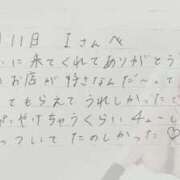 月11日 Iさんへ
いに来てくれてありがとう
お店が好きなんだ〜。って
てもらえてうれしかったで
がやけちゃうくらい4ん〜し
っついてたのしかった♡